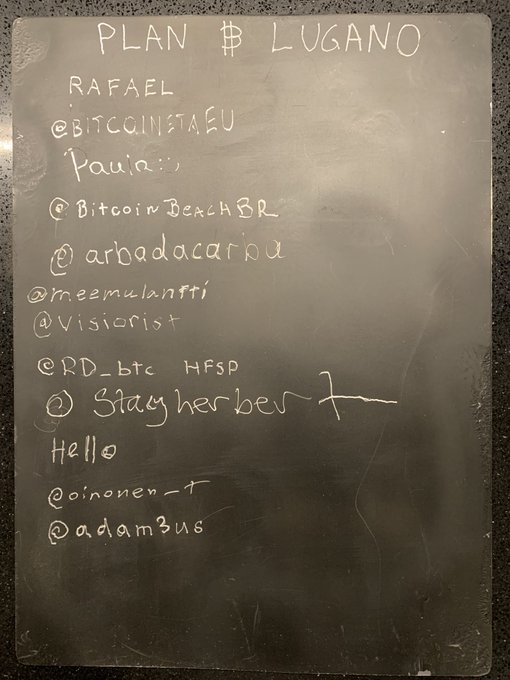 PLAN ₿ LUGANO
RAFAEL
@BITCOINETAEU
Paula:,)
@BitcoinBeachBR
@arbadacarbu
@meemulantti
@Visiorist
@RD_btc HFSP
@Stacyherbert
Hello
@oinonen_t
@adam3us